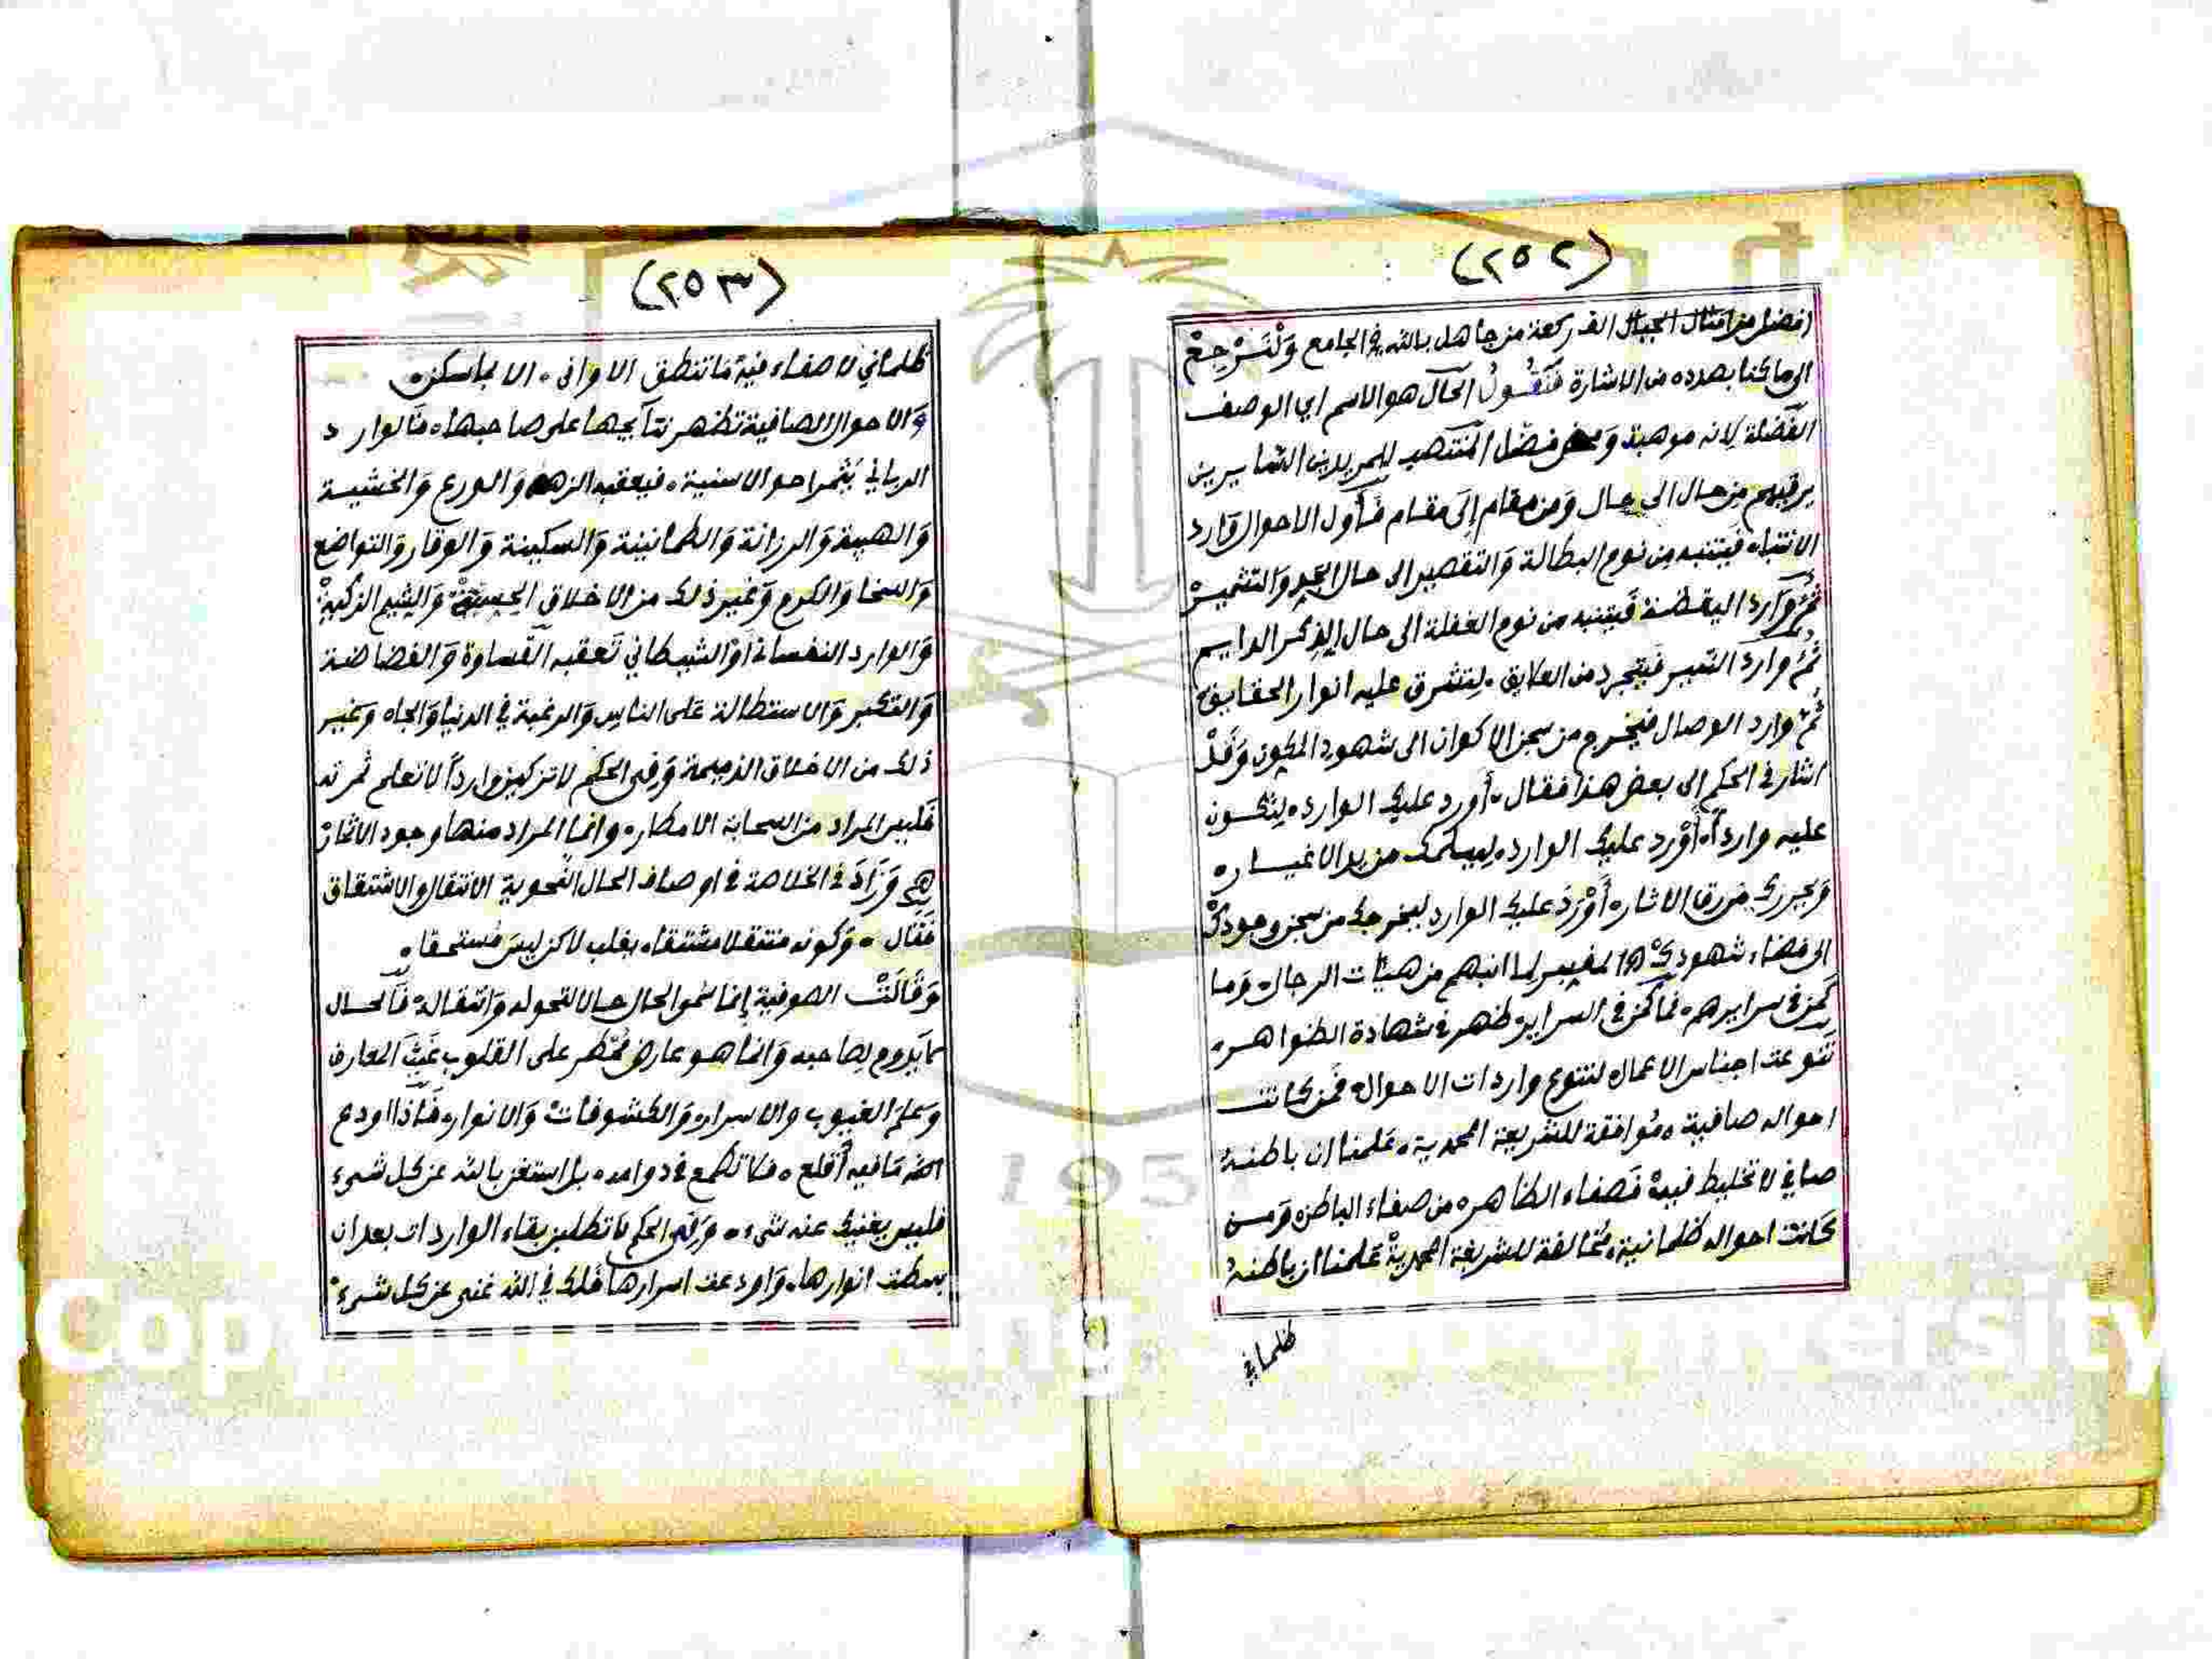 (٢٥٢)
افضل من امثال الجبال الف ركعة من جاهل بالله في الجامع وَلْنَرْجِعْ
الى ما كنا بصدده من الاشارة فَنَقُولُ الحَال هو الاسم اي الوصف
الفَضْلة لانه موهبة وَمحض فضل المنتصب للمريدين السَّايرين
يرقيهم من حال الى حال وَمن مقام إلَى مقام فَأول الاحوال وَارد
الانتباه فيتنبه من نوم البطالة وَالتقصير الى حال الجد وَالتشمير
ثُمَّ وَارد اليقظة فيتنبه من نوم الغفلة الى حال الذكر الدايم
ثُمَّ وارد السَّير فيتجرد من العلايق . لتشرق عليه انوار الحقايق
ثُمَّ وارد الوصال فيخرج من سجن الاكوان الى شهود المكون وَقَدْ
اشار في الحكم الى بعض هذا فقال . أورد عليك الوارد . لتكون
عليه وارداً . أَوْرد عليك الوارد . ليسلمك من يد الاغيار .
وَيحررك من رق الاثار . أَوْرَدَ عليك الوارد ليخرجك من سجن وجودكْ
الى فضاء شهودكْ اه المفسر لما انبهم من هيئات الرجال . وَما
كَمن في سرايرهم . فما كمن في السراير . ظهر في شهادة الظواهر .
تَنوعت اجناس الاعمال لتنوع واردات الاحوال . فَمن كانت
احواله صافية . مُوافقة للشريعة المحمدية . عَلمنا ان باطنهُ
صافي لا تخليط فيه . فَصفاء الظاهر . من صفاء الباطن . وَمن
كَانت احواله ظلمانية . مُخالفة للشريعة المحمدية عَلمنا ان باطنهُ
ظلماني
(٢٥٣)
ظلماني لا صفاء فيه . مَا تنطق الاواني . الا بما سكن .
وَالاحوال الصافية تظهر نتآيجها على صاحبها . فَالوارد
الرباني يُثمر احوالا سنية . فيعقبه الزهد وَالورع وَالخشية
وَالهيبة وَالرزانة وَالطمانينة وَالسكينة وَالوقار وَالتواضع
وَالسخا وَالكرم وَغير ذلك من الاخلاق الحسنة وَالشيم الزكية
وَالوارد النفساني أَوْ الشيطاني تَعقبه القساوة وَالفضاضة
وَالتكبر وَالاستطالة عَلى الناس وَالرغبة في الدنيا وَالجاه وَغير
ذلك من الاخلاق الذميمة وَفي الحكم لا تزكين وارداً لا تعلم ثمرته
فَليس المراد من السحابة الامطار . وانما المراد منها وجود الاثمار
اهـ وَزَادَ في الخلاصة في اوصاف الحال النَّحوية الانتقال والاشتقاق
فَقال . وَكونه منتقلا مشتقا . يغلب لاكن ليسَ مُستحقا .
وَقَالَتْ الصوفية إنما سُمو الحال حالا لتحوله وَانتقاله . فَالحال
ما يَدوم لصاحبه وَانما هو عارض مُمْطر على القلوب غَيْثَ المعارف
وَعلم الغيوب والاسرار . وَالكشوفات وَالانوار . فَاذا اودع
الله مَا فيه أُقلع . فلا تطمع في دوامه . بل استغن بالله عن كل شيء
فليس يغنيك عنه شيء . وَفي الحكم لا تطلبن بقاء الواردات بعد ان
بسطت انوارها . وَاودعت اسرارها فَلك في الله غنى عن كل شيء